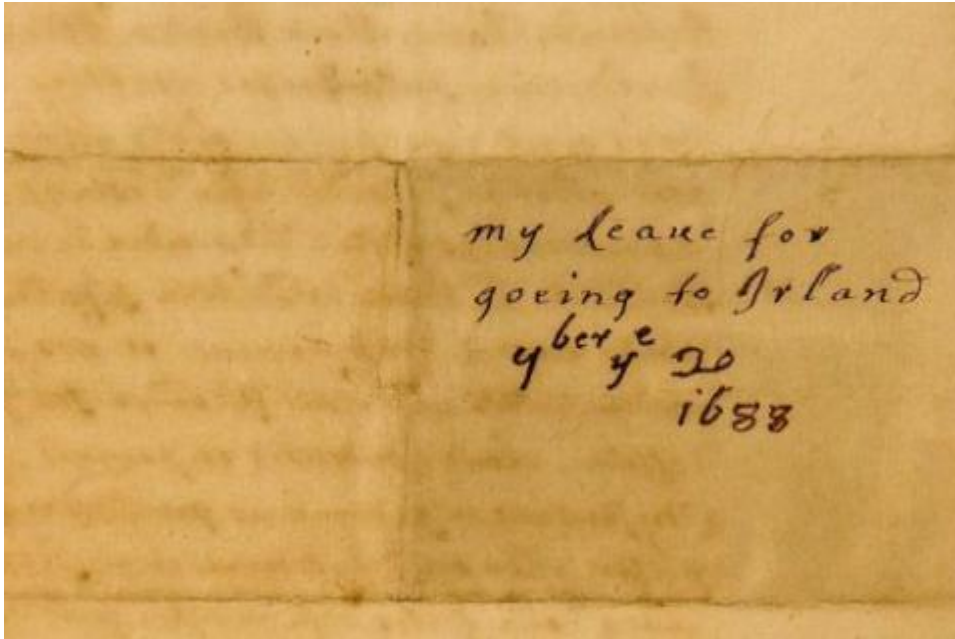 my leave for
goeing to Irland
9ber ye 20
1688